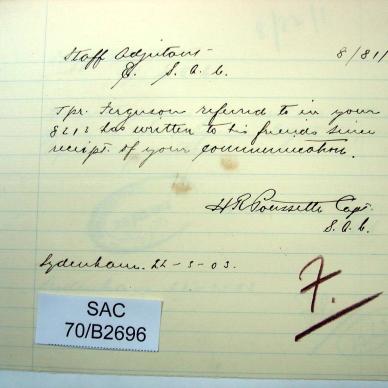 Staff Adjutant 8/81/
S. A. C.
Tpr. Ferguson referred to in your
8213 has written to his friends since
receipt of your communication.
H R Poussette Capt
S. A. C.
Lydenham. 22-5-03.
7.
SAC
70/B2696